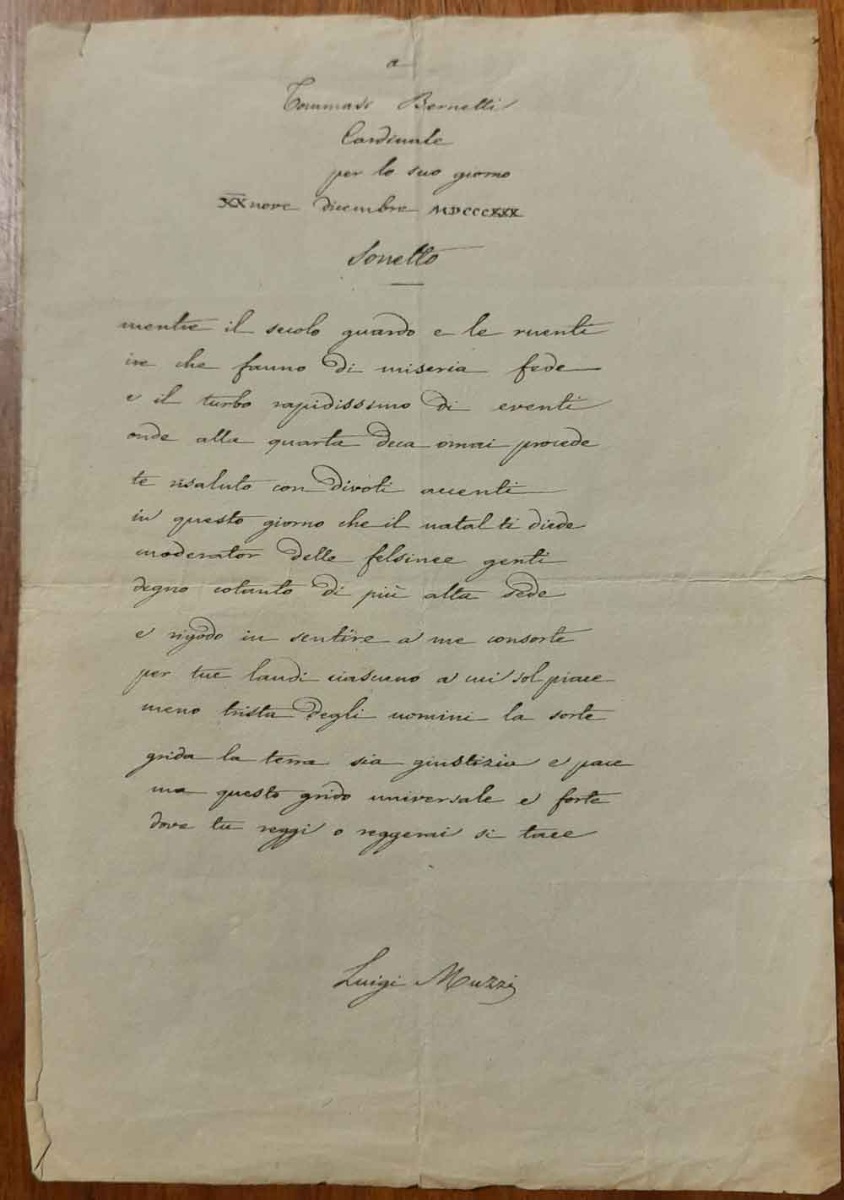 a
Tommaso Bernetti
Cardinale
per lo suo giorno
XXnove dicembre MDCCCXXX
Sonetto
mentre il secolo guardo e le ruenti
ire che fanno di miseria fede
e il turbo rapidissimo di eventi
onde alla quarta deca omai procede
te risaluto con divoti accenti
in questo giorno che il natal ti diede
moderator delle felsinee genti
degno cotanto di più alta sede
e rigodo in sentire a me consorte
per tue laudi ciascuno a cui sol piace
meno trista degli uomini la sorte
grida la terra sia giustizia e pace
ma questo grido universale e forte
dove tu reggi o reggerai si tace
Luigi Muzzi